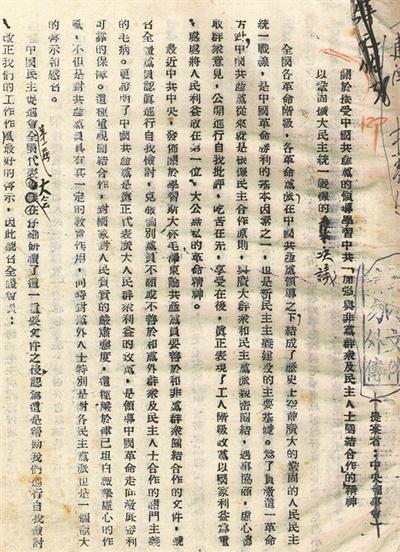 提案者:中央理事會
關於接受中國共產黨的領導學習中共「加强與非黨群衆及民主人士團結合作的精神
以鞏固擴大民主統一戰線的決議
全國各革命階級、各革命黨派在中國共產黨領導之下,結成了歷史上空前廣大的鞏固的人民民主
統一戰線,是中國革命勝利的基本因素之一,也是新民主主義建設的主要基礎。爲了負責這一革命
中國共產黨從來就是根據民主合作原則,與廣大群衆和民主黨派親密團結,遇事協商,虛心聽
取群衆意見,公開進行自我批評,吃苦在先,享受在後,眞正表現了工人階級政黨以國家利益爲重
處處將人民利益放在第一位,大公無私的革命精神。
最近中共中央,發佈關於學習斯大林毛澤東論共產黨員要善於和非黨群衆團結合作的文件,號
召全黨黨員認眞進行自我檢討,克服個別黨員不願或不善於和黨外群衆及民主人士合作的關門主義
的毛病。更證明了中國共產黨是眞正代表廣大人民群衆利益的政黨,是領導中國革命走向徹底勝利
可靠的保障。這種重視團結合作,對國家對人民負責的嚴肅態度,這種嚴於律己坦白誠摯虛心的作
風,不但是對共產黨員具有其一定的教育作用,同時對黨外人士特別是對各民主黨派也是一個極大
的啓示和感召。
中國民主促進會全國代表大會在仔細研讀了這一重要文件之後認爲這是幫助我們進行自我檢討
改正我們的工作作風最好的啓示,因此號召全體會員: